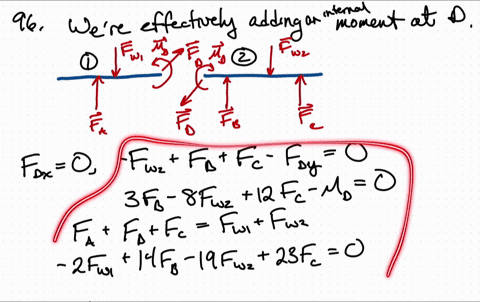 96. We're effectively adding an internal moment at D.
① F_W1 M_D F_D M_D ② F_W2
F_A F_D F_B F_C
F_Dx = 0, -F_W2 + F_B + F_C - F_Dy = 0
3F_B - 8F_W2 + 12F_C - M_D = 0
F_A + F_B + F_C = F_W1 + F_W2
-2F_W1 + 14F_B - 19F_W2 + 23F_C = 0